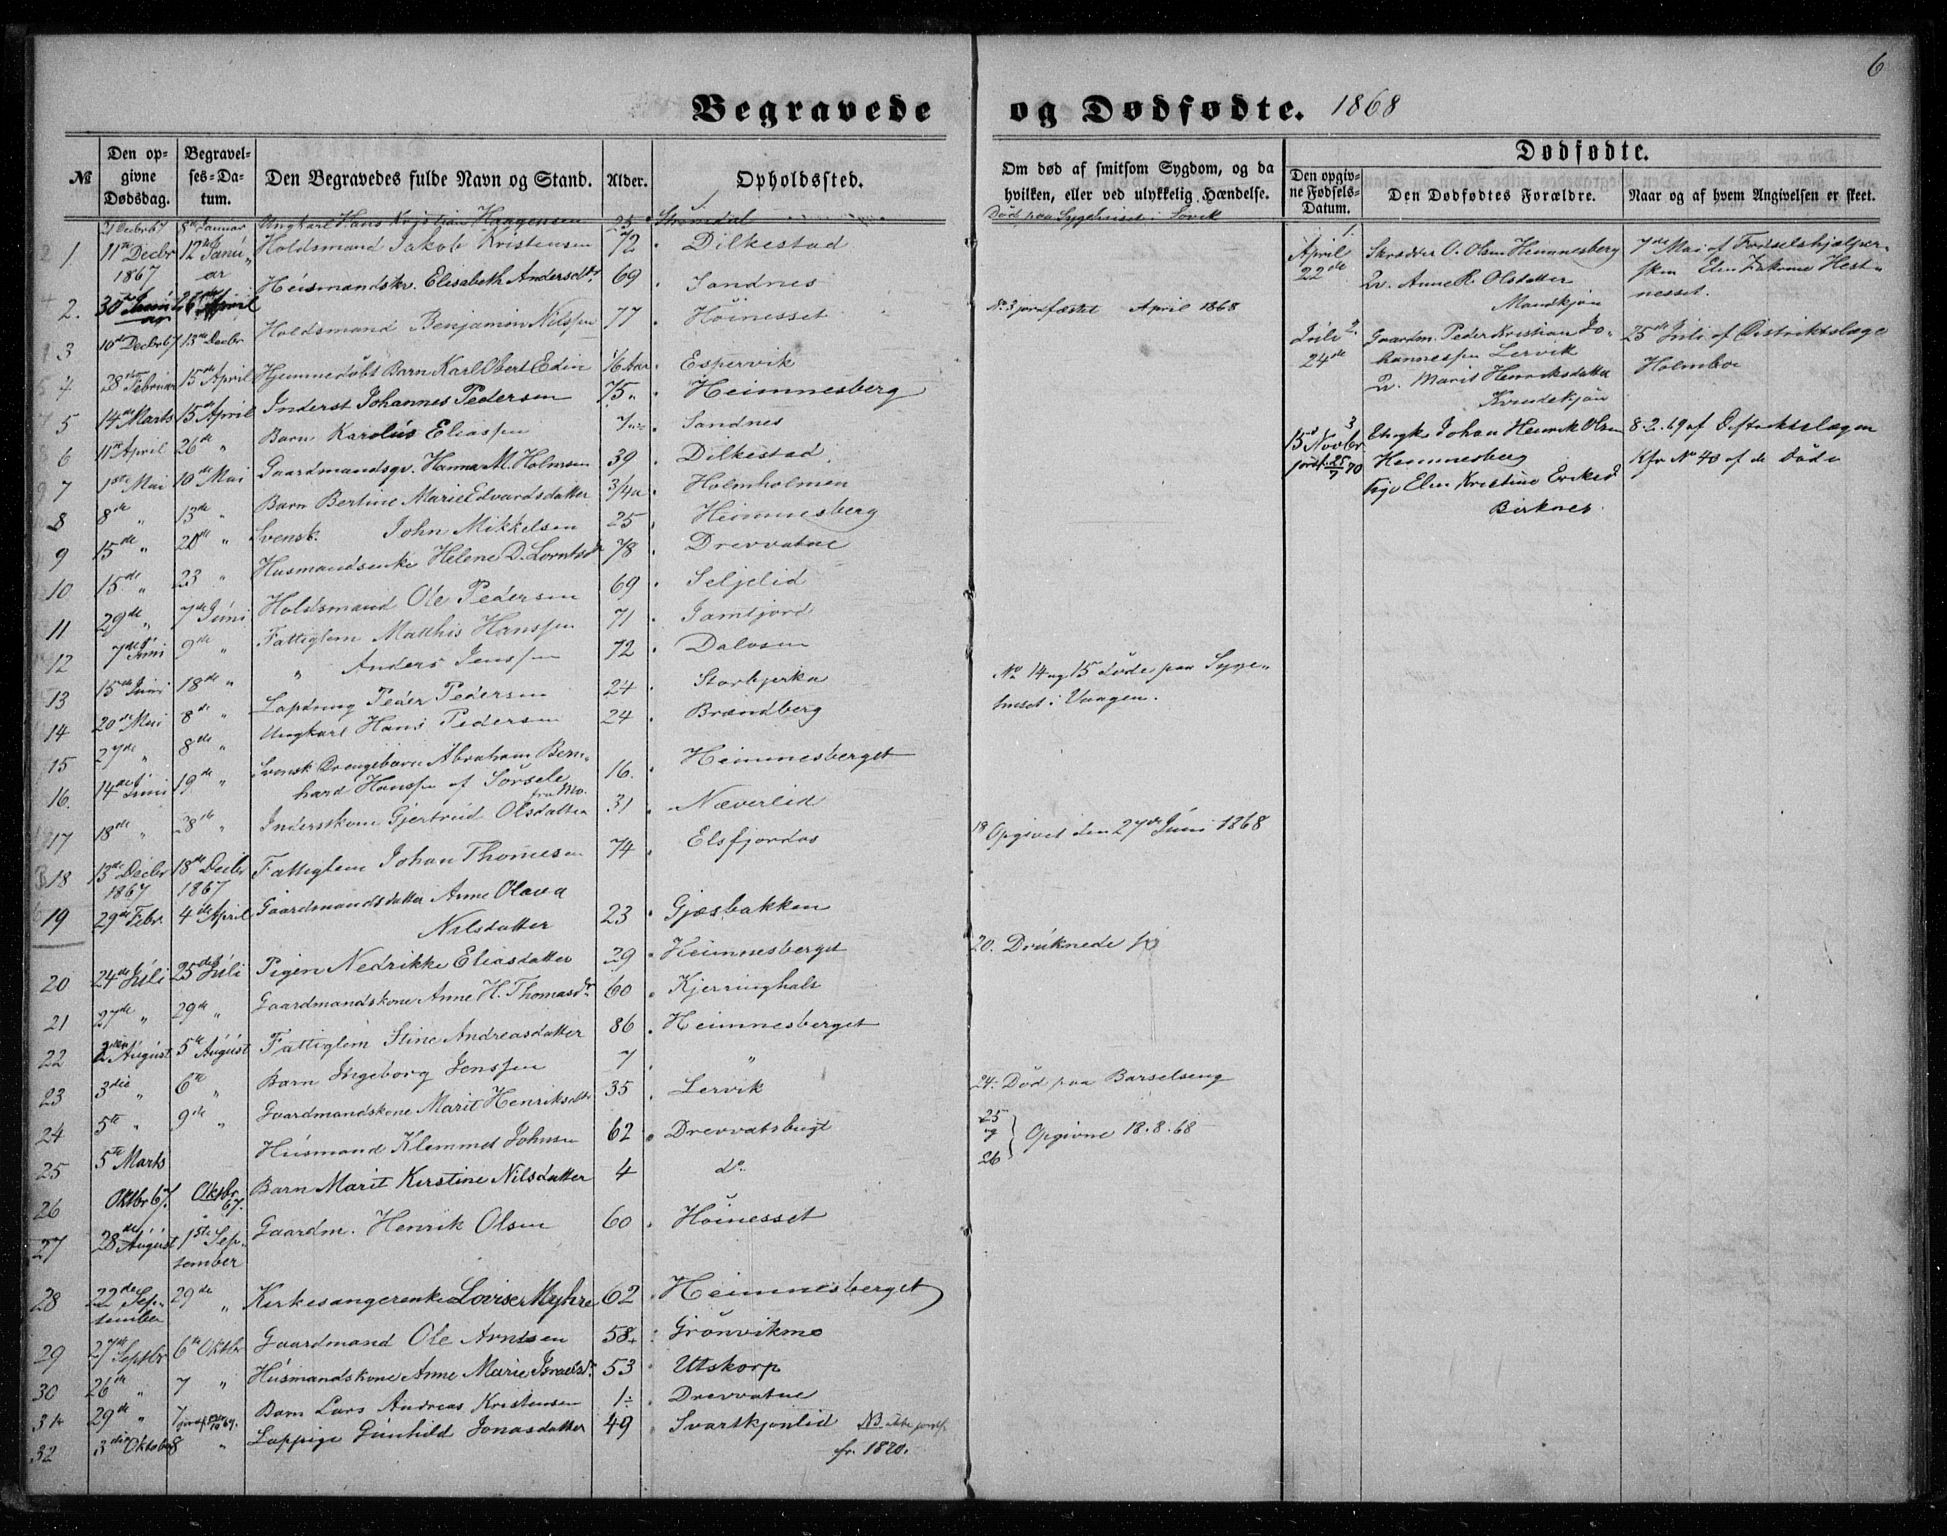 6
Begravede og Dødfødte. 1868
№ Den opgivne Dødsdag. Begravelses-Datum. Den Begravedes fulde Navn og Stand. Alder. Opholdssted.
Om død af smitsom Sygdom, og da hvilken, eller ved ulykkelig Hændelse.
Dødfødte.
Den opgivne Fødsels-Datum. Den Dødfødtes Forældre. Naar og af hvem Angivelsen er skeet.
21 Decbr 67 8de Januar Ungkarl Hans Kristian Haagensen 25 Strømdal Død paa Sygehuset i Lovik
1. 11te Decbr 1867 12te Januar Holdsmand Jakob Kristensen 72 Dilkestad
2. 26de April Heismandskv. Elisabeth Andersdtr 69 Sandnes
3 10de Decbr 67 13de Decbr Holdsmand Benjamin Nilssen 77 Höinesset No 3 jordfæstet April 1868
4 28de Februar 15de April Hjemmedøbt Barn Karl Obert Edin 1/6 Aar Espervik
5 14de Marts 15de April Inderst Johannes Pedersen 75 " Heimnesberg
6 11te April 26de " Barn Karolus Eliassen 7 Sandnes
7 1ste Mai 10de Mai Gaardmandsgv. Hanna M. Holmsen 39 Dilkestad
8 8de " 13de " Barn Bertine Marie Edvardsdatter 3/4 a Holmholmen
9 15de " 20de " Svensk. John Mikkelsen 25 Heimnesberg
10 15de " 23 " Husmandsenke Helene D. Lorntsdtr 78 Drevvatne
11 29de " 7de Juni Holdsmand Ole Pedersen 69 Seljelid
12 7de Juni 9de " Fattiglem Matthis Hanssen 71 Jamtjord
13 15de Juni 18de " " Anders Jenssen 72 Dalosen
14 20de Mai 8de " Lapdreng Peder Pedersen 24 Storbjerka No 14 og 15 døde paa Sygehuset i Vaagen.
15 27de " 8de " Ungkarl Hans Pedersen 24 Brændberg
16. 14de Juni 19de " Svensk Drengebarn Abraham Bernhard Hanssen af Sorsele fra Mo. 16. Heimnesberget
17 18de " 28de " Inderstkone Gjertrud Olsdatter 31 Næverlid
18 13de Decbr 1867 18de Decbr 1867 Fattiglem Johan Thomesen 74 Elsfjordos 18 Opgivet den 27de Juni 1868
19 29de Febr. 4de April Gaardmandsdatter Anne Olava Nilsdatter 23 Gjæsbakken
20 24de Juli 25de Juli Pigen Nedrikke Eliasdatter 29 Heimnesberget 20. Druknede
21 27de " 29de " Gaardmandskone Anne H. Thomasdtr 60 Kjerringhals
22 2den August 5te August Fattiglem Stine Andreasdatter 86 Heimnesberget
23 3die " 6te " Barn Ingeborg Jenssen 7 "
24 5te " 9de " Gaardmandskone Marit Henriksdtr 35 Lervik 24. Død paa Barselseng
25 5te Marts Husmand Klemmet Johnsen 62 Drevvatsbugt 25 og 26 } Opgivne 18.8.68
26 Oktbr 67. Oktbr 67. Barn Marit Kirstine Nilsdatter 4 do
27 28de August 1ste September Gaardm. Henrik Olsen 60 Höinesset
28 22de September 29de " Kirkesangerenke Lovise Myhre 62 Heimnesberget
29 27de Septbr 6te Oktbr Gaardmand Ole Arntsen 58 Grönvikmo
30 26de " 7 " Husmandskone Anne Marie Israelsdr 53 Utskorp
31 29de " 7 Barn Lars Andreas Kristensen 1 Drevvatne
32 3die Oktober 8 " Lappige Gunhild Jonasdatter 49 Svartkjønlid NB ikke jordf. før 1870.
1. April 22de Skrædder O. Olsen Hemnesberg Qv. Anne R. Olsdatter Mandkjøn 7de Mai af Fødselshjelpersken Elen Hestnesset.
2. Juli 24de Gaardm. Peder Kristian Johannessen Lervik Qv. Marit Henriksdatter Kvindekjøn 25de Juli af Distriktslæge Holmboe
3 15de Novbr jordf. 25/7 70 Ungk. Johan Henrik Olsen Hemnesberg Pige Elen Kristine Eriksd Birknes. 8.2.69 af Distriktslægen Kfr No 40 af de Døde